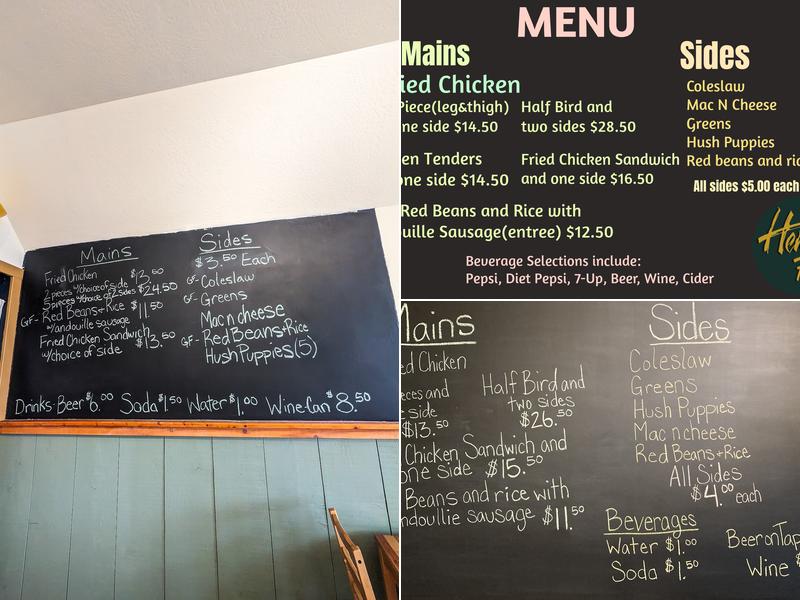 Mains
Fried Chicken
2 pieces w/choice of side $13.50
5 pieces w/choice of 2 sides $24.50
GF- Red Beans+Rice $11.50
w/andouille sausage
Fried Chicken Sandwich
w/choice of side $13.50
Sides
$3.50 Each
GF- Coleslaw
GF- Greens
Mac n cheese
GF- Red Beans+Rice
Hush Puppies (5)
Drinks- Beer $6.00 Soda $1.50 Water $1.00 Wine-Can $8.50
MENU
Mains
ied Chicken
Piece(leg&thigh)
ne side $14.50
Half Bird and
two sides $28.50
en Tenders
one side $14.50
Fried Chicken Sandwich
and one side $16.50
Red Beans and Rice with
uille Sausage(entree) $12.50
Beverage Selections include:
Pepsi, Diet Pepsi, 7-Up, Beer, Wine, Cider
Sides
Coleslaw
Mac N Cheese
Greens
Hush Puppies
Red beans and ric
All sides $5.00 each
He
Mains
ed Chicken
eces and
side
$13.50
Half Bird and
two sides
$26.50
Chicken Sandwich and
one side $15.50
Beans and rice with
ndoullie sausage $11.50
Sides
Coleslaw
Greens
Hush Puppies
Mac n cheese
Red Beans+Rice
All Sides
$4.00 each
Beverages
Water $1.00
Soda $1.50
Beer on Tap
Wine $